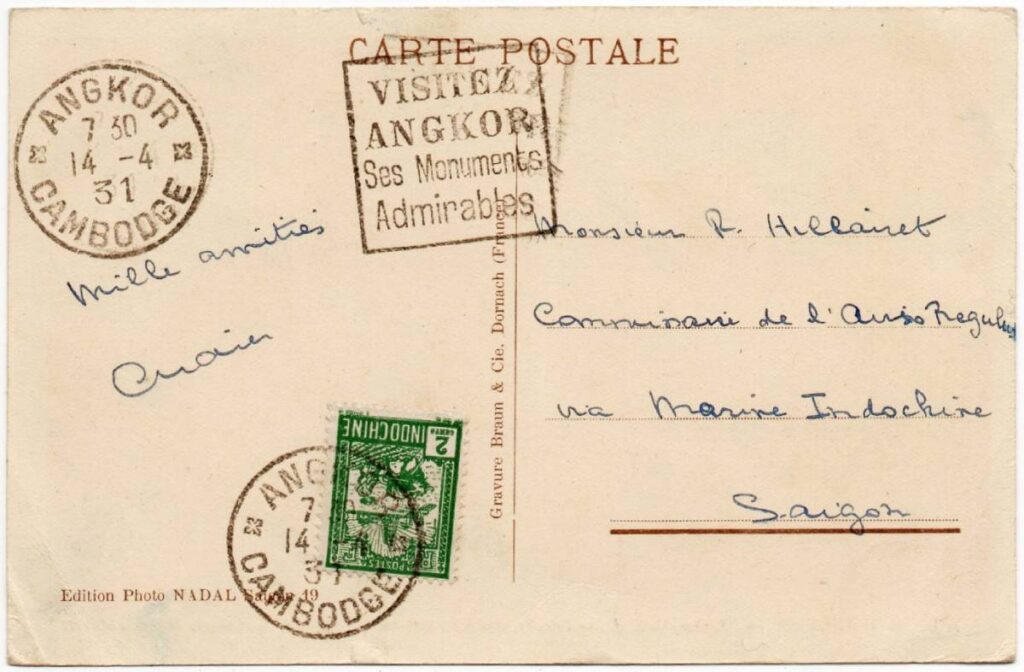 CARTE POSTALE
ANGKOR
7 30
14 -4
31
CAMBODGE
VISITEZ
ANGKOR
Ses Monuments
Admirables
Mille amitiés
Monsieur R. Hillairet
Commissaire de l'Aviso Regulus
via Marine Indochine
Saigon
Gravure Braun & Cie. Dornach (France)
2
CENTS
INDOCHINE
POSTES
ANG
7
14
31
CAMBODGE
Edition Photo NADAL Saigon 19